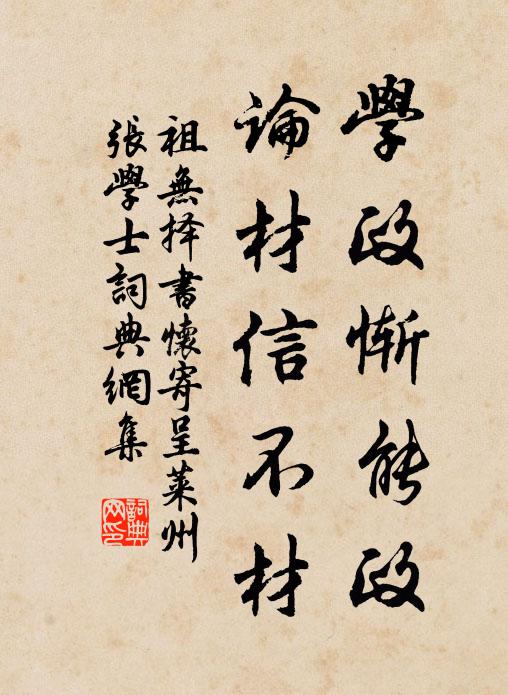 學政惭能政
論材信不材
祖無择書懷寄呈萊州
張學士詞典網集
詞典網印